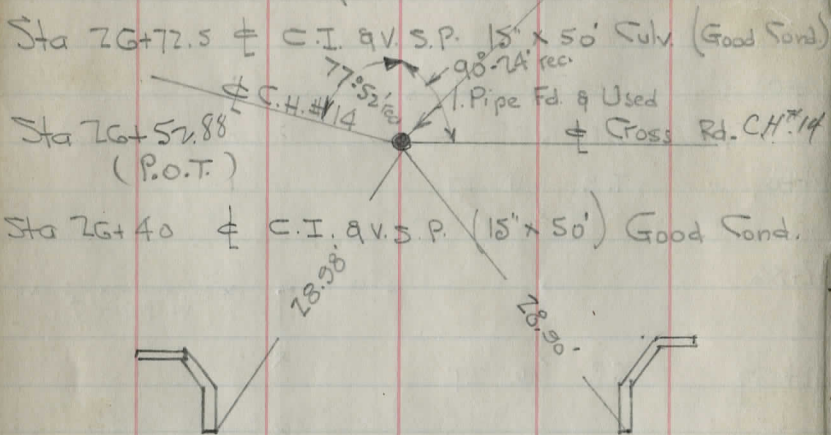 Sta 26+72.5 ℄ C.I. & V.S.P. 15" x 50' Culv. (Good Cond.)
77°52' rec.
90°-24' rec.
℄ C.H. #14
I. Pipe Fd. & Used
Sta 26+52.88
℄ Cross Rd. C.H. #14
(P.O.T.)
Sta 26+40 ℄ C.I. & V.S.P. (15" x 50') Good Cond.
28.98'
28.90-